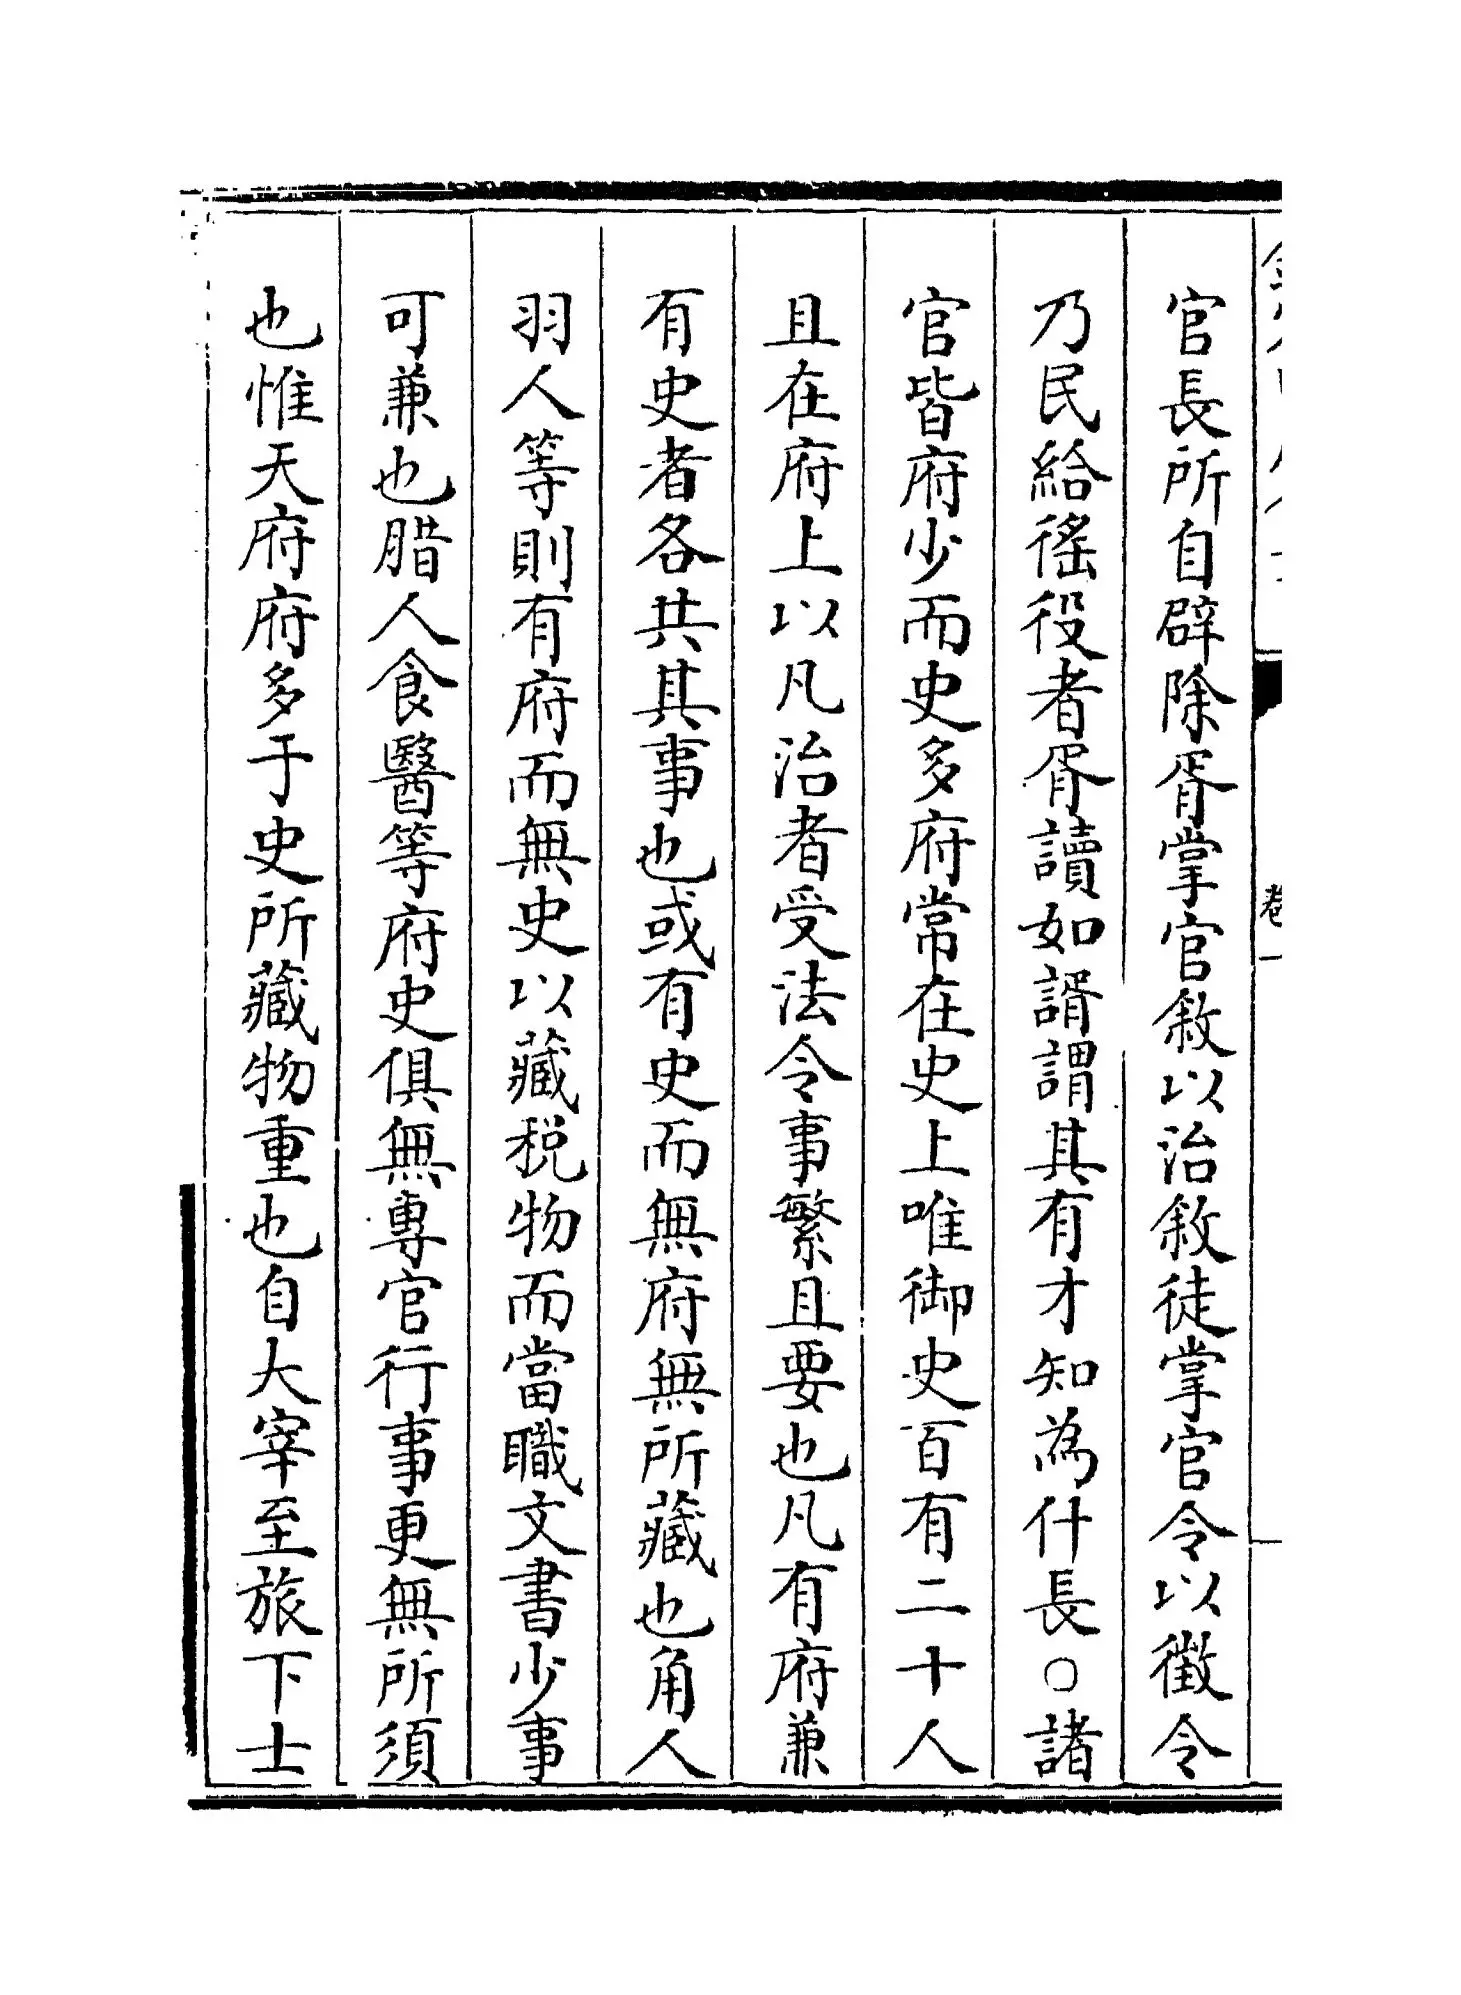 官長所自辟除胥掌官敘以治敘徒掌官令以徵令
乃民給徭役者胥讀如諝謂其有才知為什長○諸
官皆府少而史多府常在史上唯御史百有二十人
且在府上以凡治者受法令事繁且要也凡有府兼
有史者各共其事也或有史而無府無所藏也角人
羽人等則有府而無史以藏稅物而當職文書少事
可兼也腊人食醫等府史俱無專官行事更無所須
也惟天府府多于史所藏物重也自大宰至旅下士
卷一